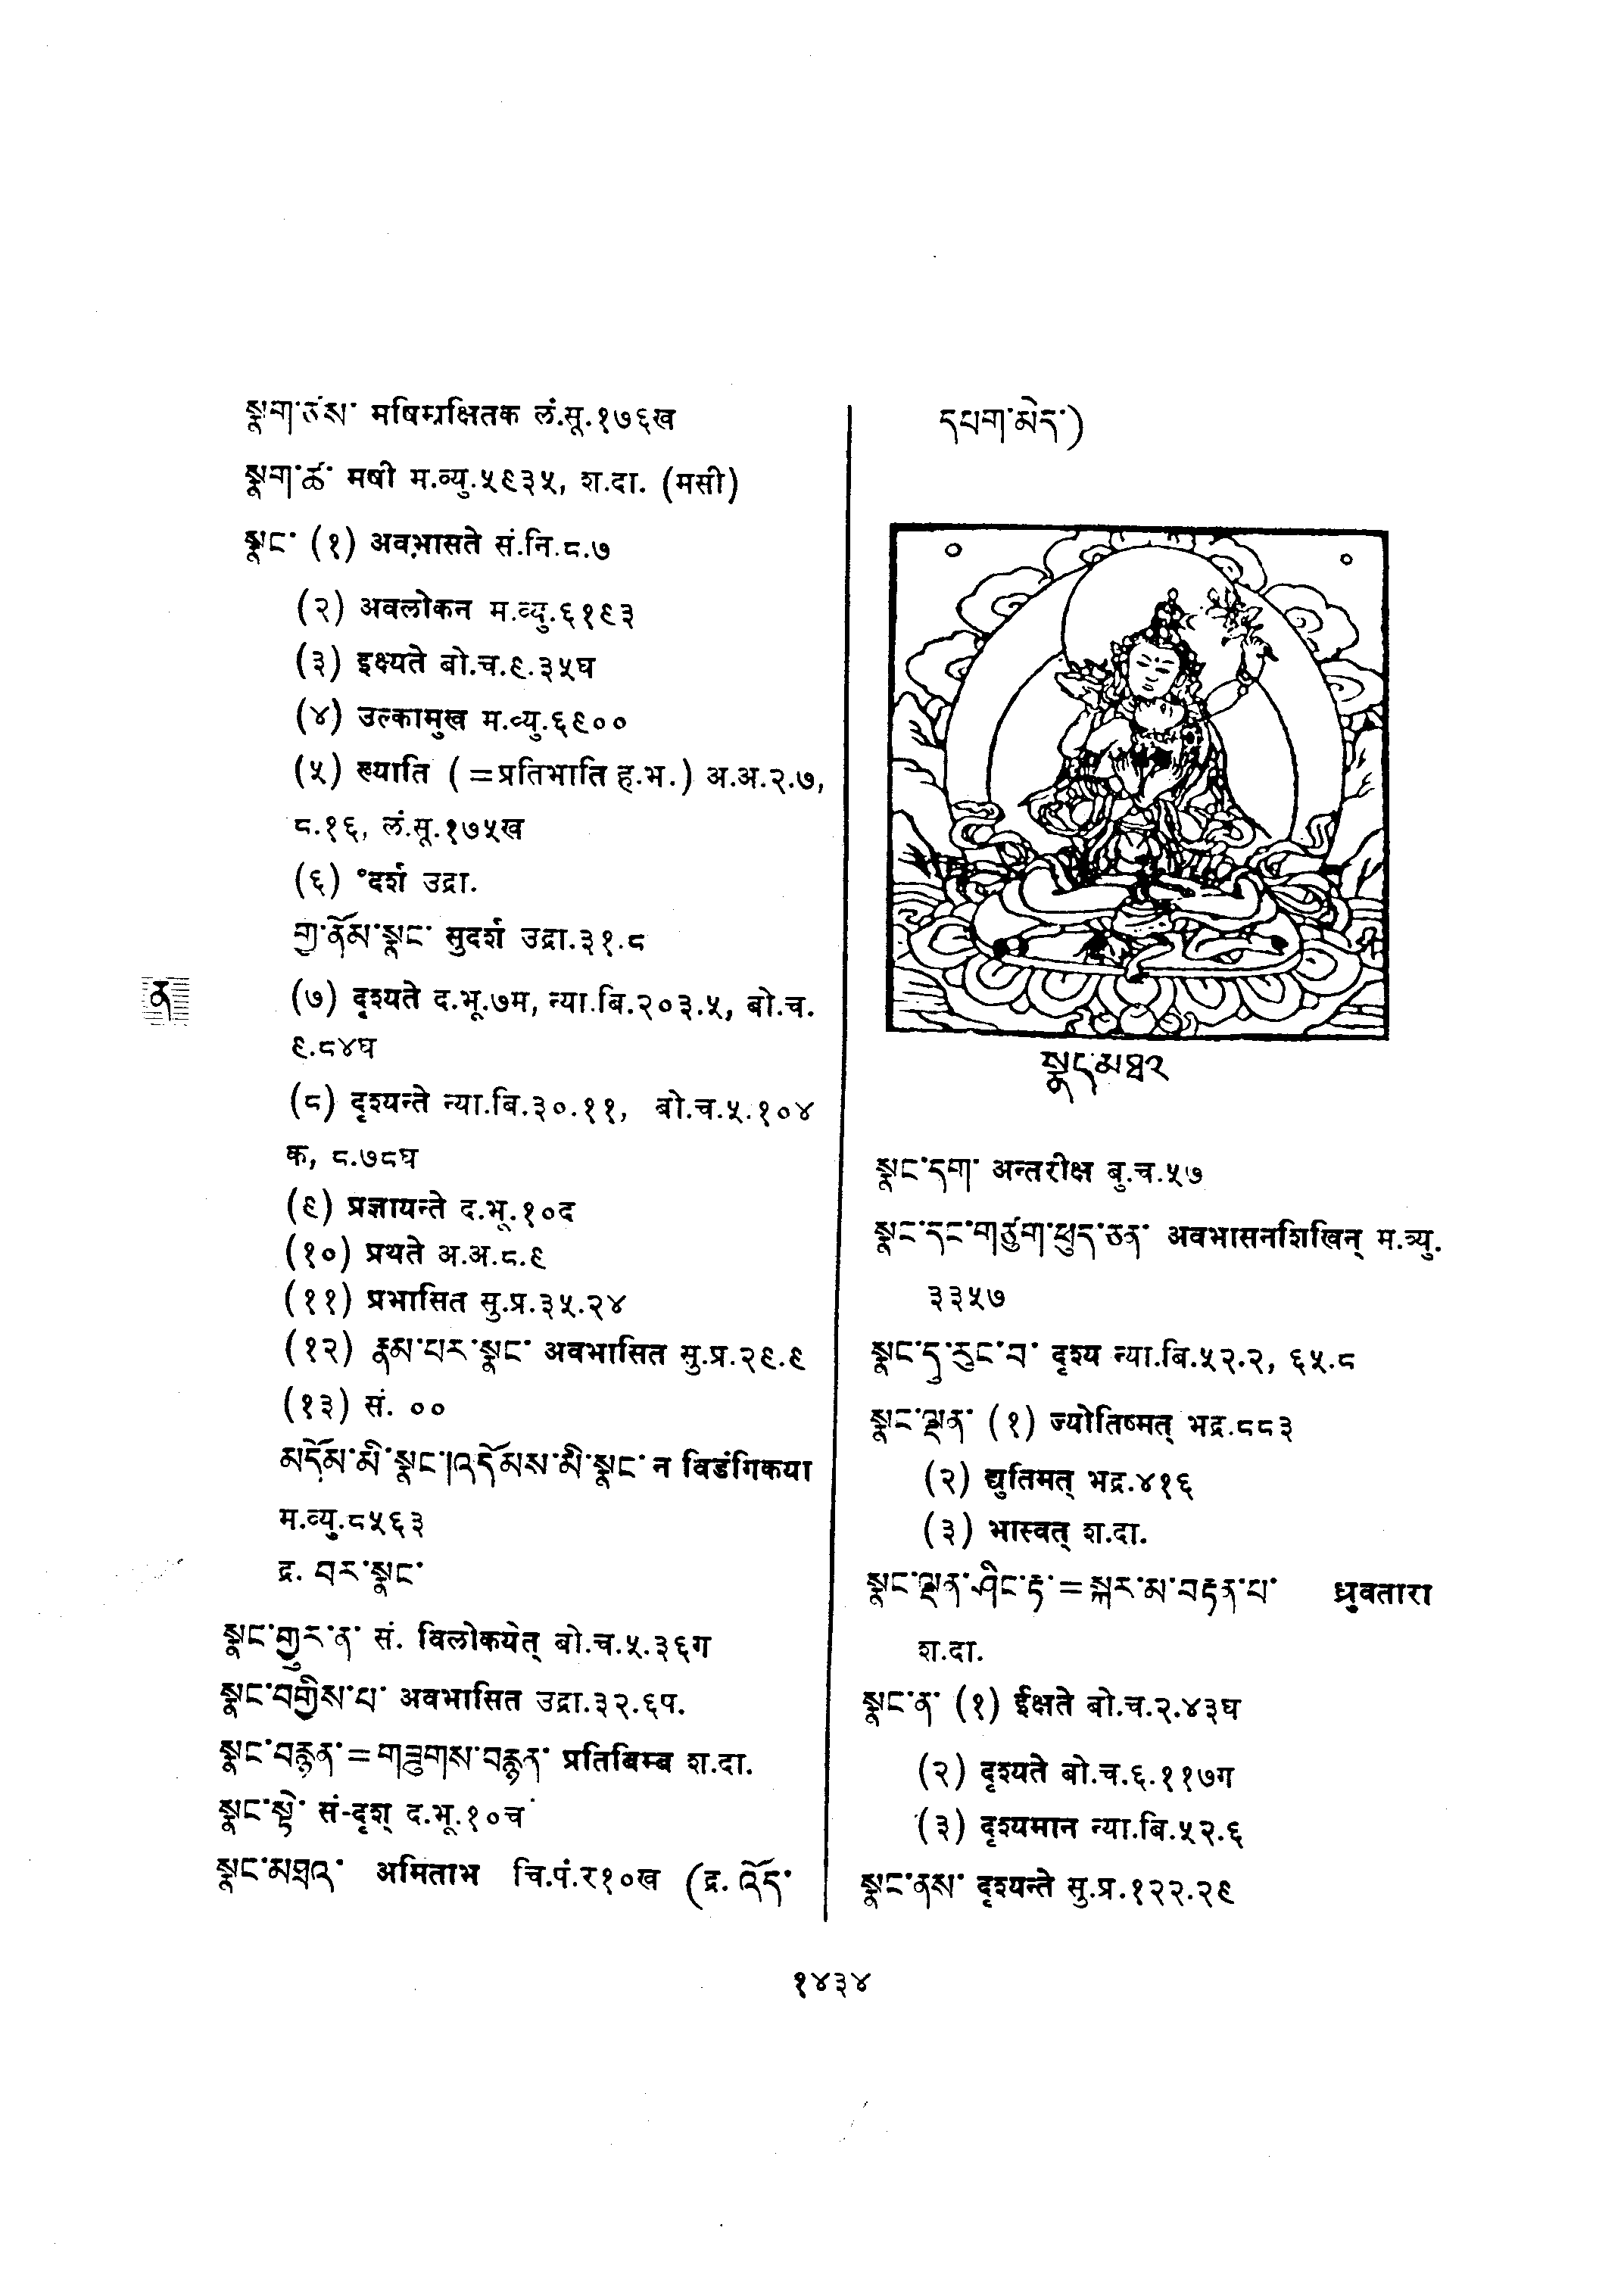 སྣག་ཙས་ मषिम्रक्षितक लं.सू.१७६ख
སྣག་ཚ་ मषी म.व्यु.५९३५, श.दा. (मसी)
སྣང་ (१) अवभासते सं.नि.८.७
(२) अवलोकन म.व्यु.६१९३
(३) इक्ष्यते बो.च.९.३५घ
(४) उल्कामुख म.व्यु.६९००
(५) ख्याति (=प्रतिभाति ह.भ.) अ.अ.२.७,
८.१६, लं.सू.१७५ख
(६) °दर्श उद्रा.
གྱ་ནོམ་སྣང་ सुदर्श उद्रा.३१.८
(७) दृश्यते द.भू.७म, न्या.बि.२०३.५, बो.च.
९.८४घ
(८) दृश्यन्ते न्या.बि.३०.११, बो.च.५.१०४
क, ८.७८घ
(९) प्रज्ञायन्ते द.भू.१०द
(१०) प्रथते अ.अ.८.९
(११) प्रभासित सु.प्र.३५.२४
(१२) རྣམ་པར་སྣང་ अवभासित सु.प्र.२९.९
(१३) सं. ००
མདོམ་མི་སྣང་།འདོམས་མི་སྣང་ न विडंगिकया
म.व्यु.८५६३
द्र. བར་སྣང་
སྣང་གྱུར་ན་ सं. विलोकयेत् बो.च.५.३६ग
སྣང་བགྱིས་པ་ अवभासित उद्रा.३२.६प.
སྣང་བརྙན་=གཟུགས་བརྙན་ प्रतिबिम्ब श.दा.
སྣང་སྟེ་ सं-दृश् द.भू.१०च
སྣང་མཐའ་ अमिताभ चि.पं.र१०ख (द्र. འོད་
དཔག་མེད་)
སྣང་མཐའ
སྣང་དག་ अन्तरीक्ष बु.च.५७
སྣང་དང་གཙུག་ཕུད་ཅན་ अवभासनशिखिन् म.व्यु.
३३५७
སྣང་དུ་རུང་བ་ दृश्य न्या.बि.५२.२, ६५.८
སྣང་ལྡན་ (१) ज्योतिष्मत् भद्र.८८३
(२) द्युतिमत् भद्र.४१६
(३) भास्वत् श.दा.
སྣང་ལྡན་ཤིང་རྟ་=སྐར་མ་བརྟན་པ་ ध्रुवतारा
श.दा.
སྣང་ན་ (१) ईक्षते बो.च.२.४३घ
(२) दृश्यते बो.च.६.११७ग
(३) दृश्यमान न्या.बि.५२.६
སྣང་ནས་ दृश्यन्ते सु.प्र.१२२.२९
ན
१४३४